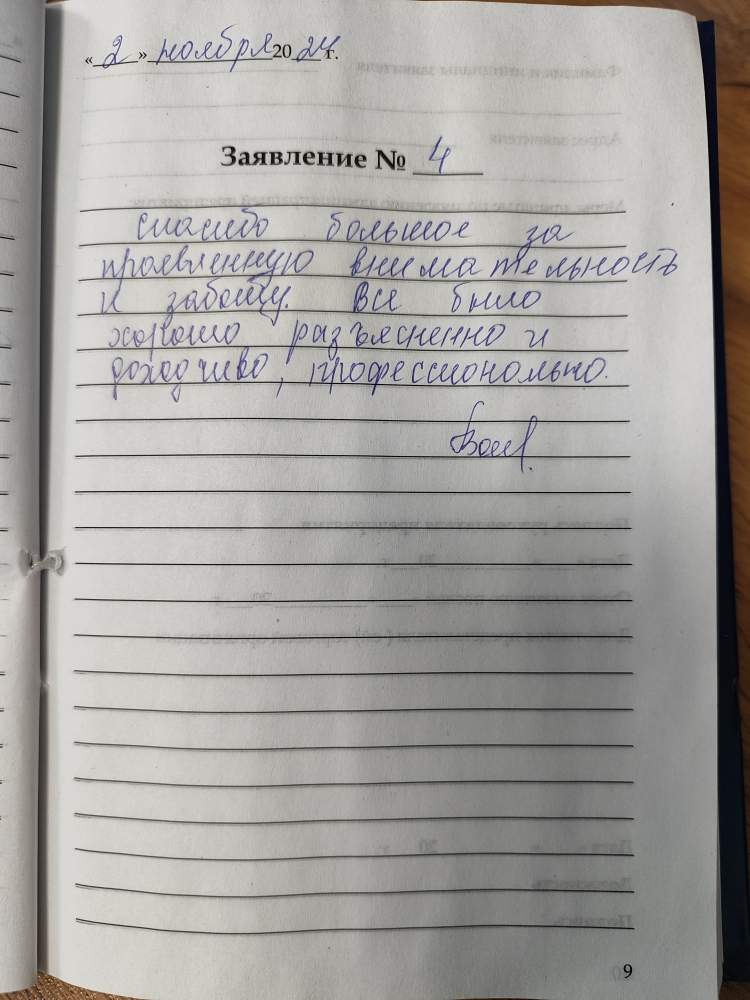 «2» ноября 2024 г.
Заявление № 4
Спасибо большое за
проявленную внимательность
и заботу. Все было
хорошо разъясненно и
доходчиво, профессионольно.
9